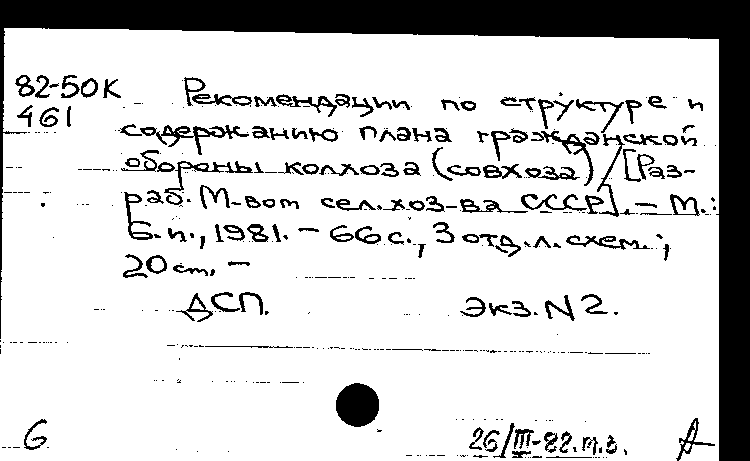 82-50К Рекомендации по структуре и
461 содержанию плана гражданской
обороны колхоза (совхоза) / [Раз-
раб. М-вом сел. хоз-ва СССР]. – М.:
Б.и., 1981. – 66 с., 3 отд. л. схем.;
20 см. –
ДСП. Экз. N 2.
6 26/III-82. т.з.